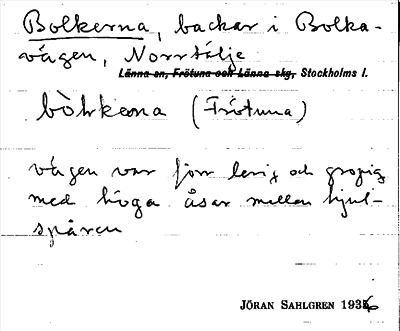 Bolkerna, backar i Bolka-
vägen, Norrtälje
Länna sn, Frötuna och Länna skg, Stockholms l.
bòlkena (Frötuna)
vägen var förr lerig och gropig
med höga åsar mellan hjul-
spåren
JÖRAN SAHLGREN 1936